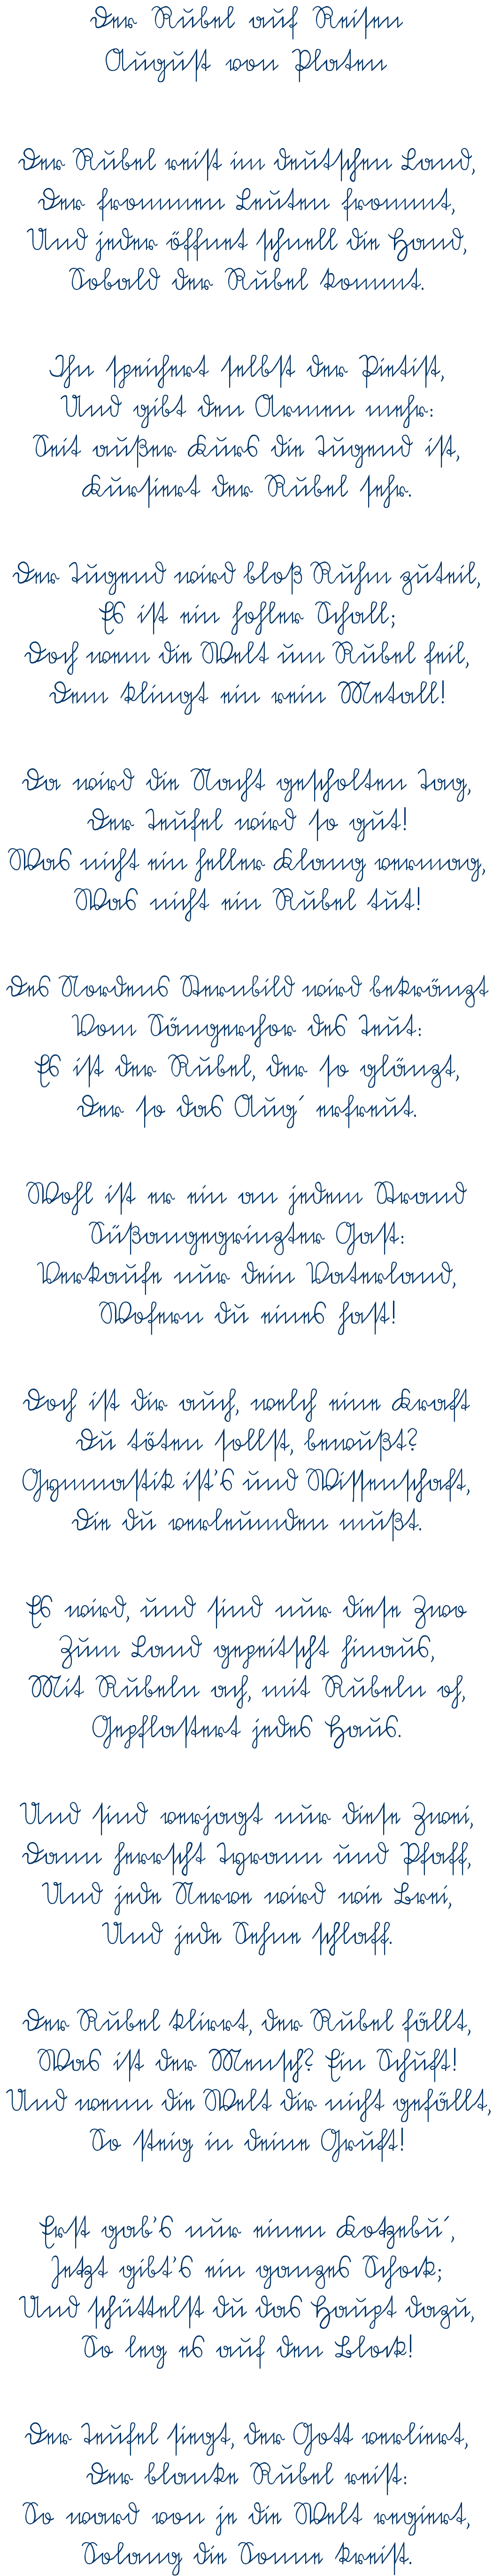 Der Rubel auf Reisen
August von Platen
Der Rubel reist im deutschen Land,
Der frommen Leuten frommt,
Und jeder öffnet schnell die Hand,
Sobald der Rubel kommt.
Ihn speichert selbst der Pietist,
Und gibt den Armen mehr:
Seit außer Kurs die Tugend ist,
Kursiert der Rubel sehr.
Der Tugend wird bloß Ruhm zuteil,
Es ist ein hohler Schall;
Doch wem die Welt um Rubel feil,
Dem klingt ein rein Metall!
Da wird die Nacht gescholten Tag,
Der Teufel wird so gut!
Was nicht ein heller Klang vermag,
Was nicht ein Rubel tut!
Des Nordens Sternbild wird bekränzt
Vom Sängerchor des Teut:
Es ist der Rubel, der so glänzt,
Der so das Aug´ erfreut.
Wohl ist er ein an jedem Strand
Süßangegrinzter Gast:
Verkaufe nur dein Vaterland,
Wofern du eines hast!
Doch ist dir auch, welch eine Kraft
Du töten sollst, bewußt?
Gymnastik ist's und Wissenschaft,
Die du verleumden mußt.
Es wird, und sind nur diese Zwo
Zum Land gepeitscht hinaus,
Mit Rubeln ach, mit Rubeln oh,
Gepflastert jedes Haus.
Und sind verjagt nur diese Zwei,
Dann herrscht Tyrann und Pfaff,
Und jede Nerve wird wie Brei,
Und jede Sehne schlaff.
Der Rubel klirrt, der Rubel fällt,
Was ist der Mensch? Ein Schuft!
Und wenn die Welt dir nicht gefällt,
So steig in deine Gruft!
Erst gab's nur einen Kotzebu´,
Jetzt gibt's ein ganzes Schock;
Und schüttelst du das Haupt dazu,
So leg es auf den Block!
Der Teufel siegt, der Gott verliert,
Der blanke Rubel reist:
So ward von je die Welt regiert,
Solang die Sonne kreist.